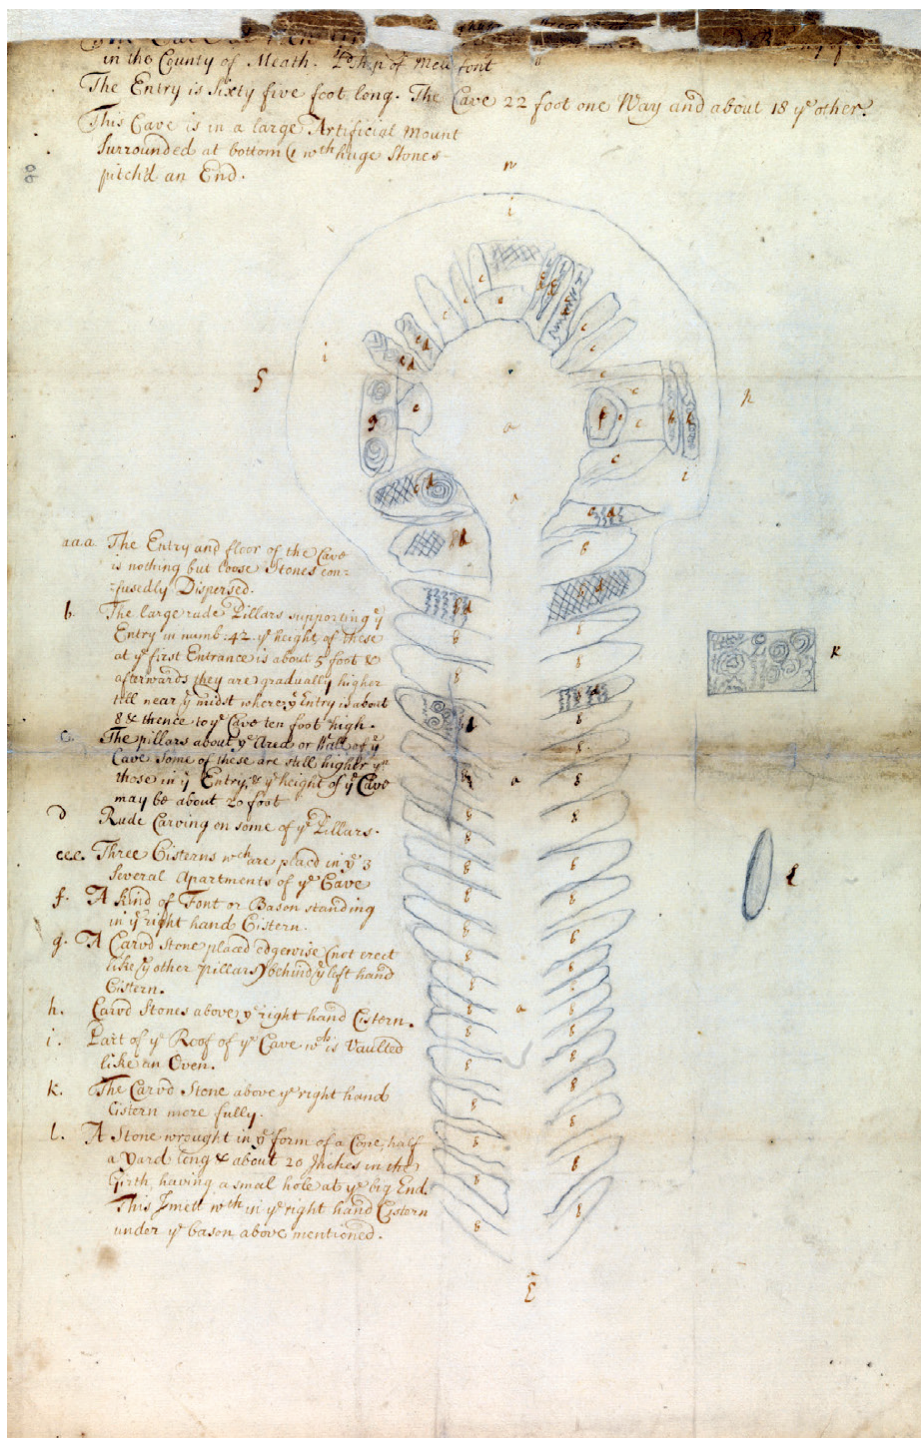 in the County of Meath.
The Entry is Sixty five foot long. The Cave 22 foot one Way and about 18 yᵉ other.
This Cave is in a large Artificial Mount
Surrounded at bottom wᵗʰ huge Stones
pitch'd an End.
90
n
i
c
e
i
S
h
g
f
a
a.a.a. The Entry and floor of the Cave
is nothing but loose Stones con:
:fusedly Dispersed.
b. The large rude Pillars supporting yᵉ
Entry in numb: 42. yᵉ height of these
at yᵉ first Entrance is about 5 foot &
afterwards they are gradually higher
till near yᵉ midst where yᵉ Entry is about
8 & thence to yᵉ Cave ten foot high.
c. The pillars about yᵉ Area or Wall of yᵉ
Cave some of these are still higher yⁿ
those in yᵉ Entry, & yᵉ height of yᵉ Cave
may be about 20 foot
d Rude Carving on some of yᵉ Pillars.
e.e.e. Three Cisterns wᶜʰ are placd in yᵉ 3
Several Apartments of yᵉ Cave
f. A kind of Font or Bason standing
in yᵉ right hand Cistern.
g. A Carvd Stone placed edgewise (not erect
like yᵉ other pillars) behind yᵉ left hand
Cistern.
h. Carvd Stones above yᵉ right hand Cistern.
i. Part of yᵉ Roof of yᵉ Cave wᶜʰ is Vaulted
like an Oven.
k. The Carvd Stone above yᵉ right hand
Cistern more fully.
l. A Stone wrought in yᵉ form of a Cone, half
a Yard long & about 20 Inches in the
Girth, having a smal hole at yᵉ big End.
This I mett wᵗʰ in yᵉ right hand Cistern
under yᵉ bason above mentioned.
k
l
E